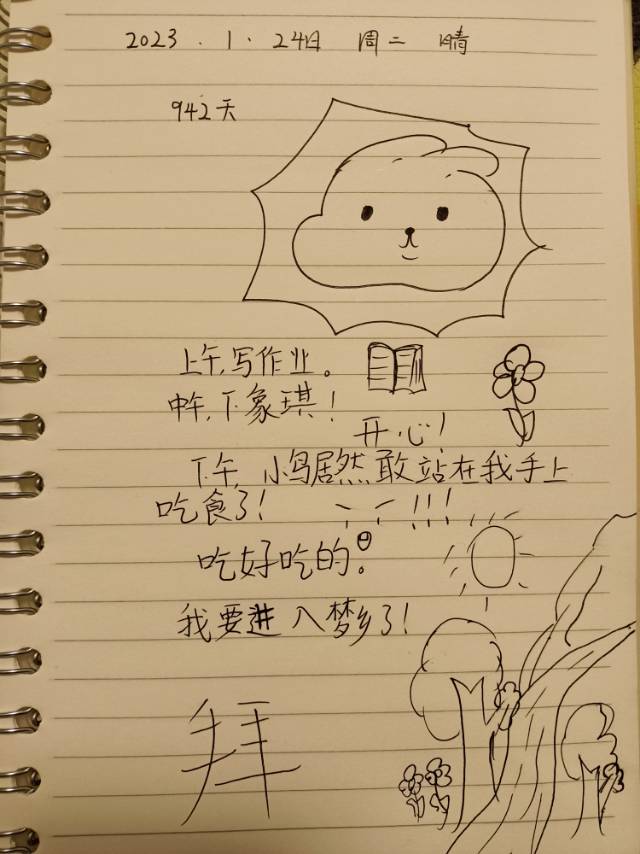 2023.1.24日 周二 晴
942天
上午,写作业。
中午,下象琪!
开心!
下午,小鸟居然敢站在我手上
吃食了! !!!
吃好吃的。
我要进入梦乡了!
拜